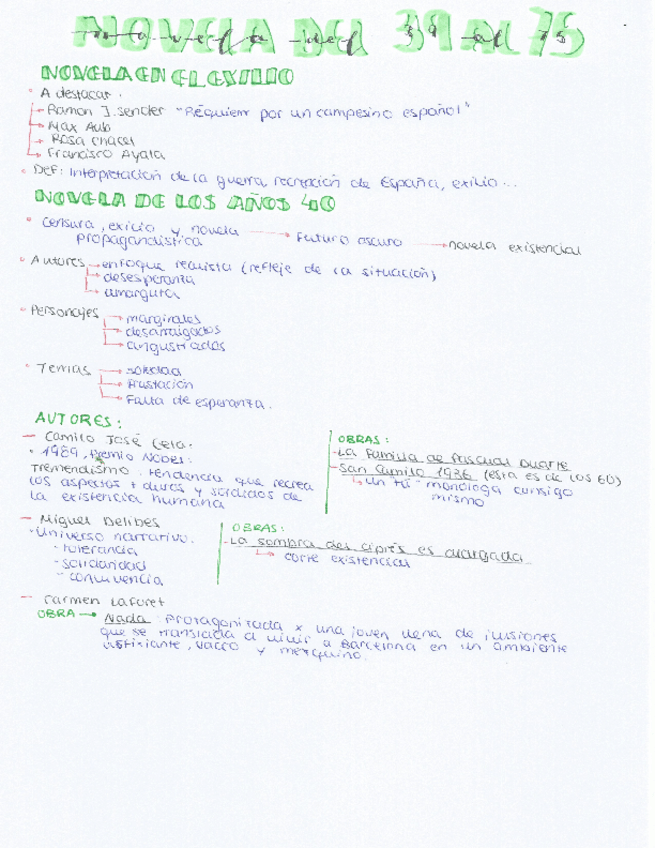 NOVELA DEL 39 AL 75
NOVELA EN EL EXILIO
A destacar:
Ramon J. sender "Réquiem por un campesino español"
Max Aub
Rosa chacel
Francisco Ayala
DEF: Interpretación de la guerra, recreación de España, exilio...
NOVELA DE LOS AÑOS 40
censura, exilio y novela propagandística → Futuro oscuro → novela existencial
Autores → enfoque realista (refleje de la situación)
desesperanza
amargura
Personajes → marginales
desarraigados
angustiados
Temas → soledad
Frustación
Falta de esperanza.
AUTORES:
- Camilo José Cela:
1989, Premio NOBEL.
Tremendismo: tendencia que recrea
los aspectos + duros y sórdidos de
la existencia humana
OBRAS:
- La Familia de Pascual Duarte
- San Camilo 1936 (esta es de los 60)
↳ un "tú" monologa consigo
mismo
- Miguel Delibes
Universo narrativo.
- tolerancia
- solidaridad
- convivencia
OBRAS:
- La sombra del ciprés es alargada
↳ corte existencial
- Carmen Laforet
OBRA → Nada: Protagonizada x una joven llena de ilusiones
que se translada a vivir a Barcelona en un ambiente
asfixiante, vacío y mezquino.